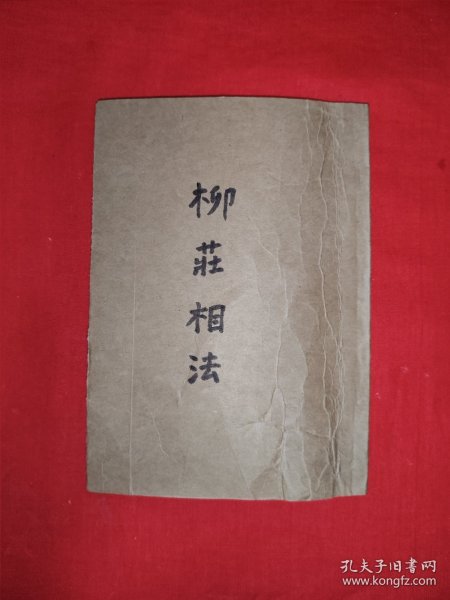 柳莊相法
孔夫子旧书网
www.kongfz.com